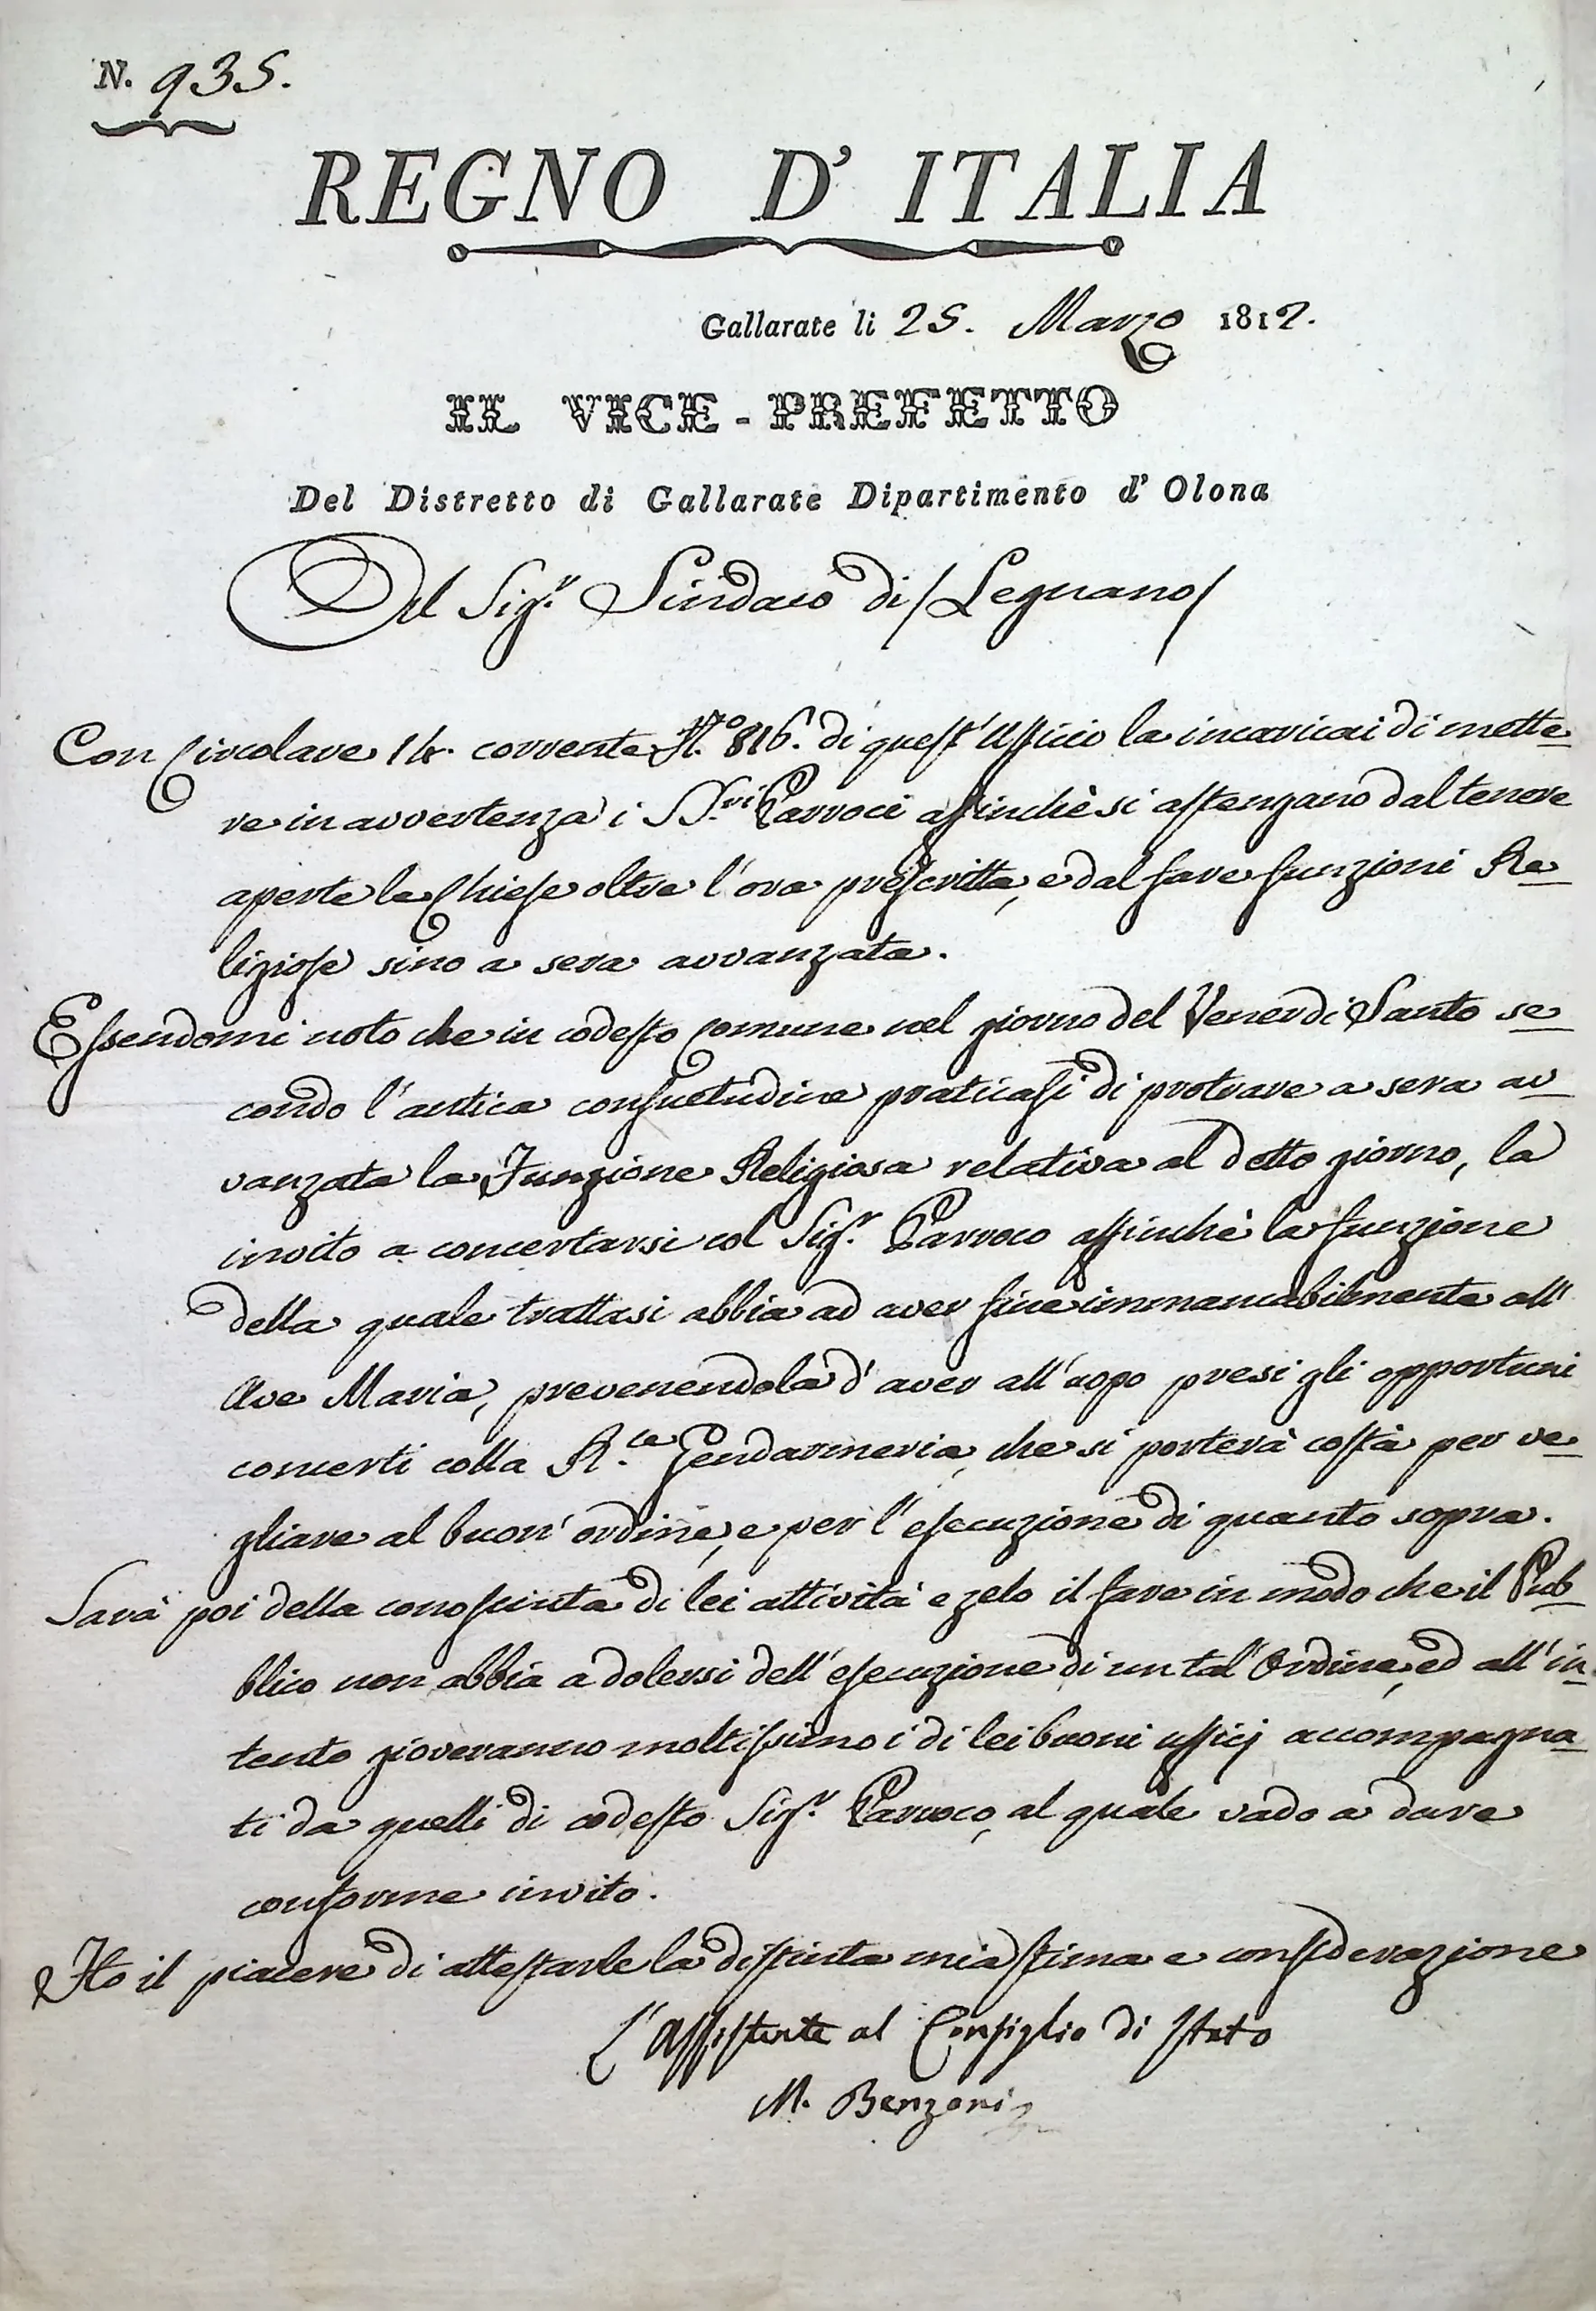 N. 935.
REGNO D' ITALIA
Gallarate li 25. Marzo 1812.
IL VICE-PREFETTO
Del Distretto di Gallarate Dipartimento d' Olona
Al Sig.r Sindaco di Legnano
Con Circolare 14. corrente N.o 816. di quest'Ufficio la incaricai di mette-
re in avvertenza i SS.ri Parroci affinchè si astengano dal tenere
aperte le Chiese oltre l'ora prescritta, e dal fare funzioni Re-
ligiose sino a sera avvanzata.
Essendomi noto che in codesto Comune nel giorno del Venerdi Santo se-
condo l'antica consuetudine praticasi di protrare a sera av-
vanzata la Funzione Religiosa relativa al detto giorno, la
invito a concertarsi col Sig.r Parroco affinchè la funzione
della quale trattasi abbia ad aver fine immancabilmente all'
Ave Maria, prevenendola d'aver all'uopo presi gli opportuni
concerti colla R.le Gendarmeria, che si porterà costà per ve-
gliare al buon'ordine, e per l'esecuzione di quanto sopra.
Sarà poi della conosciuta di lei attività e zelo il fare in modo che il Pub-
blico non abbia a dolersi dell'esecuzione di un tal'Ordine, ed all'in-
tento gioveranno moltissimo i di lei buoni ufficj accompagna-
ti da quelli di codesto Sig.r Parroco, al quale vado a dare
conforme invito.
Ho il piacere di attestarle la distinta mia stima e considerazione
L'Assistente al Consiglio di Stato
M. Benzoni